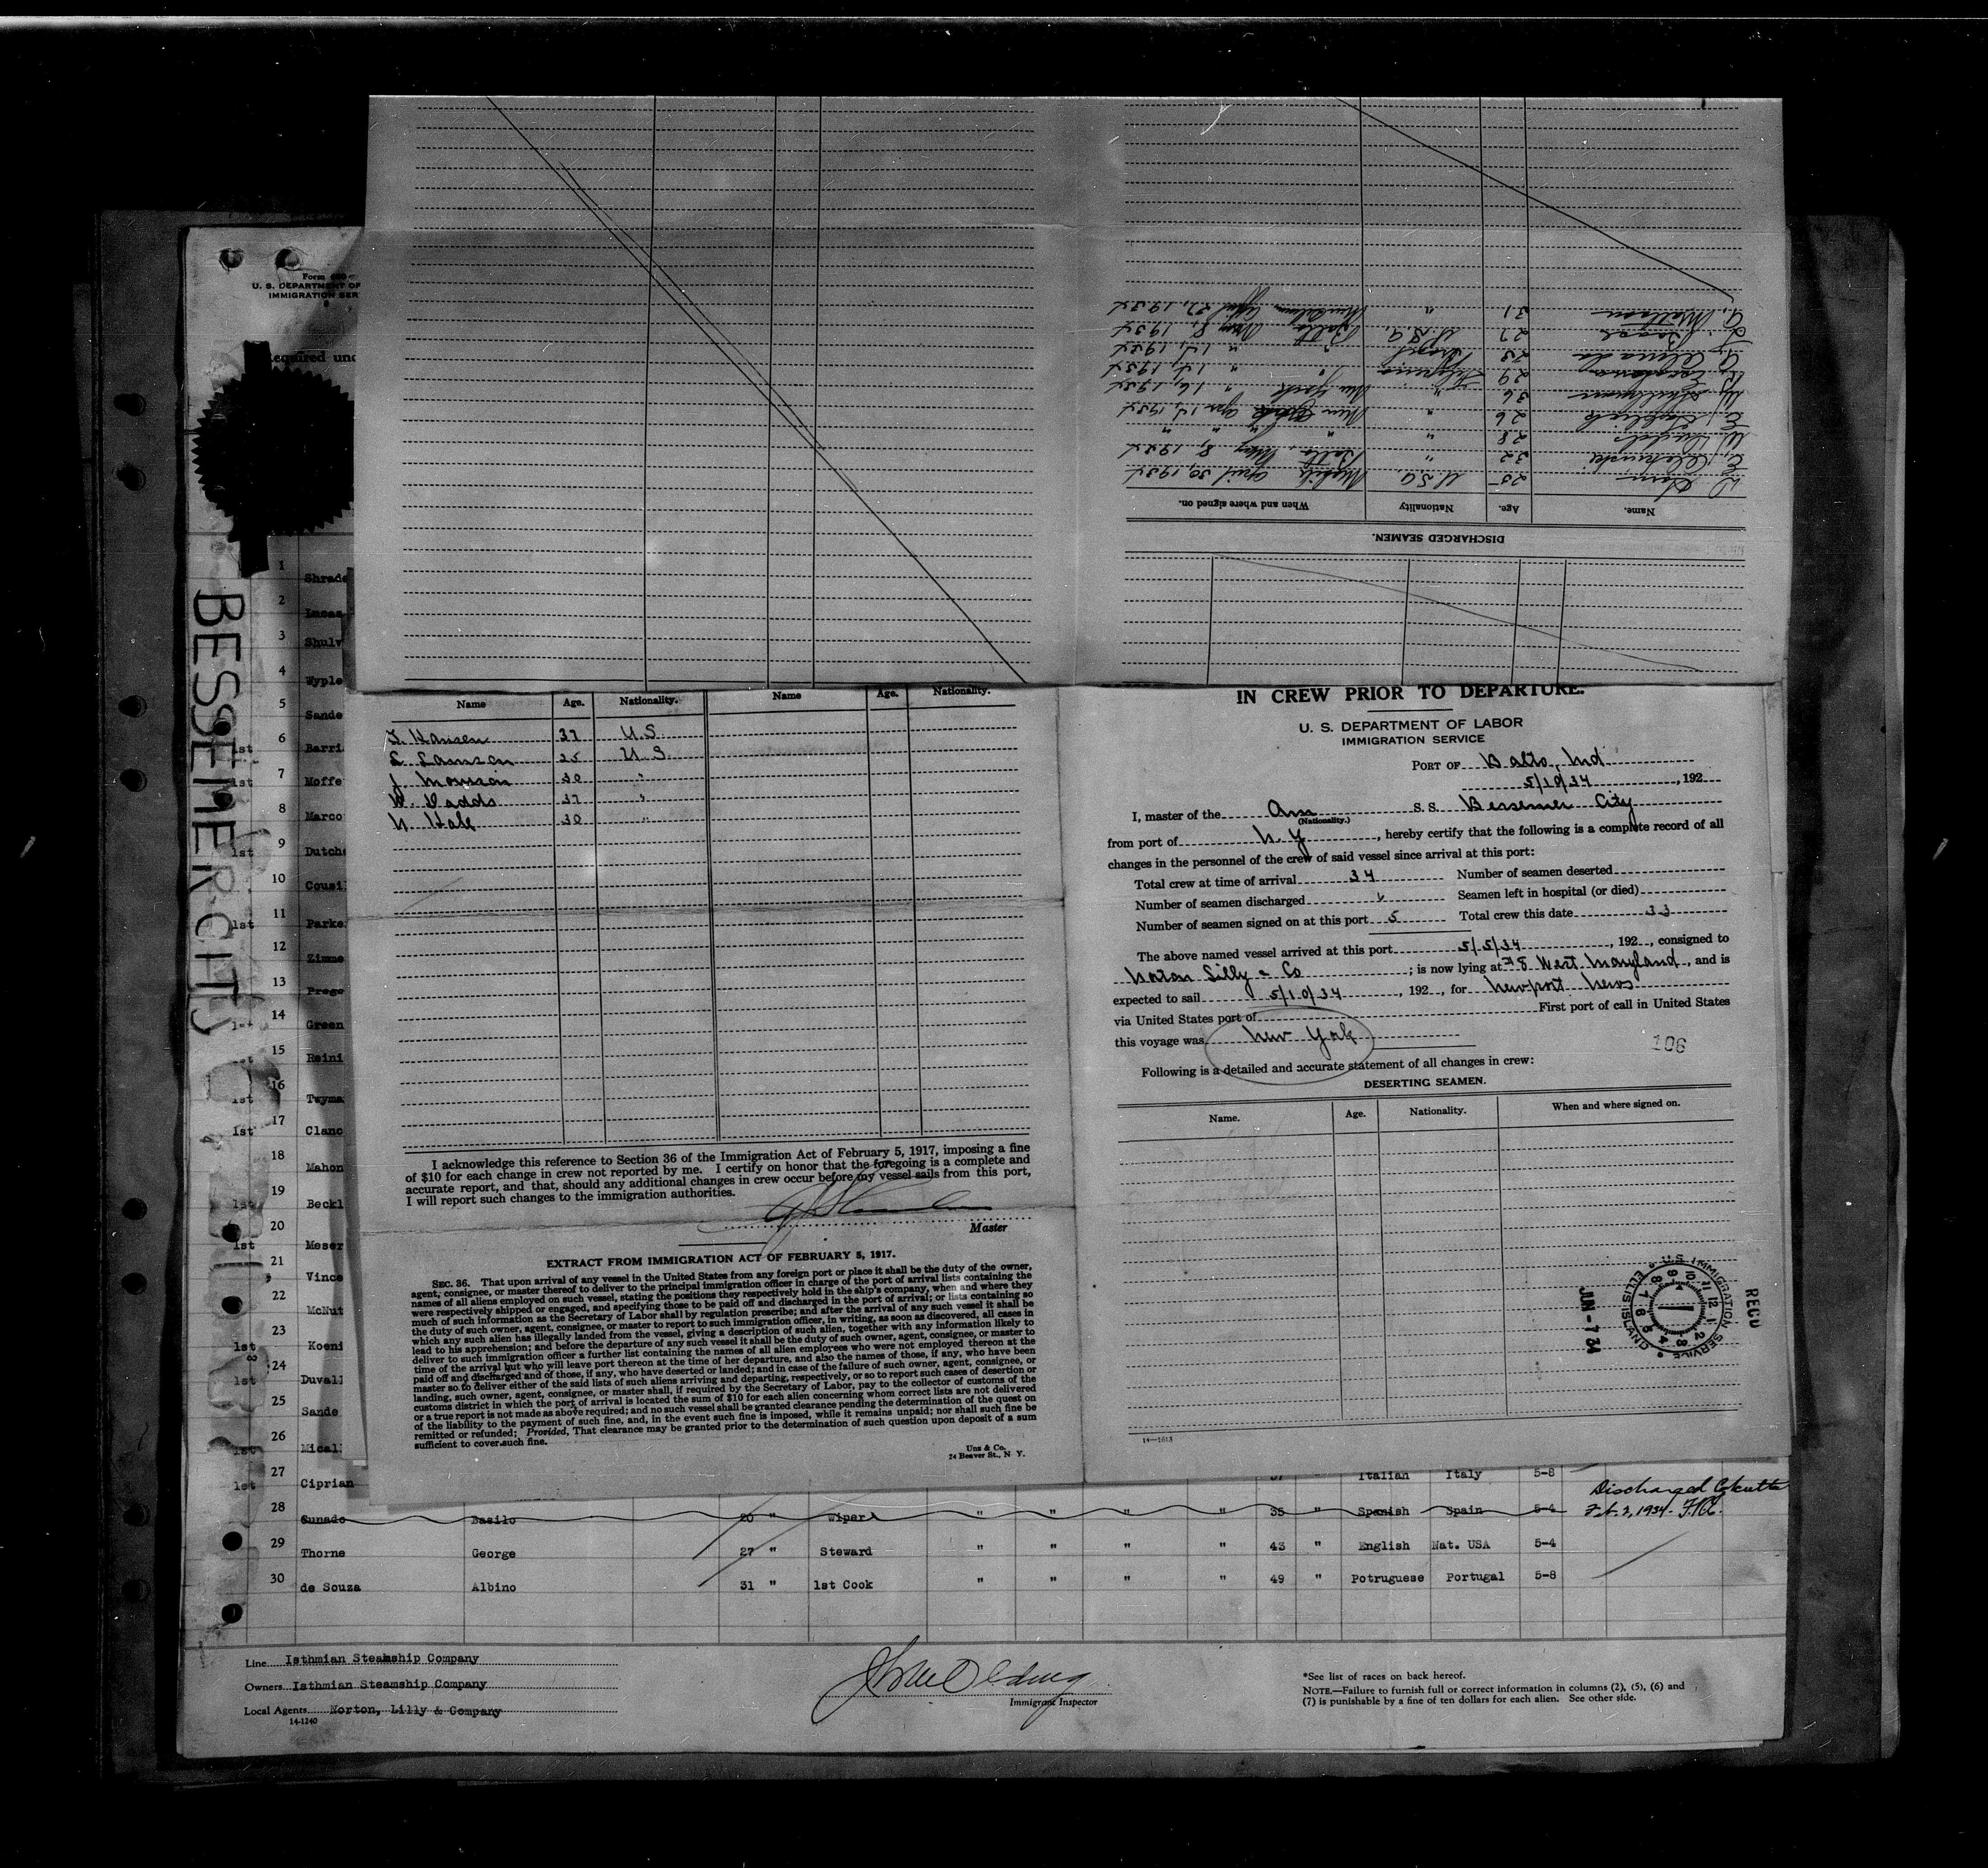 Form
U. S. DEPARTMENT OF
IMMIGRATION SER
Required und
BESSEMER CITY
DISCHARGED SEAMEN.
Name. Age. Nationality When and where signed on.
25 U.S.A. Mobile April 30, 1934
32 " Balto. May 8, 1934
28 " " " " "
26 "
36 " New York " 16, 1934
29
28
27 U.S.A. Balto May 8, 1934
A. 31 " April 27, 1934
Name Age. Nationality. Name Age. Nationality.
Hansen 37 U.S.
L. Lamson 25 U.S.
J. 30 "
W. Dadds 37 "
30 "
I acknowledge this reference to Section 36 of the Immigration Act of February 5, 1917, imposing a fine
of $10 for each change in crew not reported by me. I certify on honor that the foregoing is a complete and
accurate report, and that, should any additional changes in crew occur before my vessel sails from this port,
I will report such changes to the immigration authorities.
Master
EXTRACT FROM IMMIGRATION ACT OF FEBRUARY 5, 1917.
SEC. 36. That upon arrival of any vessel in the United States from any foreign port or place it shall be the duty of the owner,
agent, consignee, or master thereof to deliver to the principal immigration officer in charge of the port of arrival lists containing the
names of all aliens employed on such vessel, stating the positions they respectively hold in the ship's company, when and where they
were respectively shipped or engaged, and specifying those to be paid off and discharged in the port of arrival; or lists containing so
much of such information as the Secretary of Labor shall by regulation prescribe; and after the arrival of any such vessel it shall be
the duty of such owner, agent, consignee, or master to report to such immigration officer, in writing, as soon as discovered, all cases in
which any such alien has illegally landed from the vessel, giving a description of such alien, together with any information likely to
lead to his apprehension; and before the departure of any such vessel it shall be the duty of such owner, agent, consignee, or master to
deliver to such immigration officer a further list containing the names of all alien employees who were not employed thereon at the
time of the arrival but who will leave port thereon at the time of her departure, and also the names of those, if any, who have been
paid off and discharged and of those, if any, who have deserted or landed; and in case of the failure of such owner, agent, consignee, or
master so to deliver either of the said lists of such aliens arriving and departing, respectively, or so to report such cases of desertion or
landing, such owner, agent, consignee, or master shall, if required by the Secretary of Labor, pay to the collector of customs of the
customs district in which the port of arrival is located the sum of $10 for each alien concerning whom correct lists are not delivered
or a true report is not made as above required; and no such vessel shall be granted clearance pending the determination of the quest on
of the liability to the payment of such fine, and, in the event such fine is imposed, while it remains unpaid; nor shall such fine be
remitted or refunded; Provided, That clearance may be granted prior to the determination of such question upon deposit of a sum
sufficient to cover such fine.
Unz & Co.
24 Beaver St., N Y.
IN CREW PRIOR TO DEPARTURE.
U. S. DEPARTMENT OF LABOR
IMMIGRATION SERVICE
PORT OF Balto, Md
5/10/34, 192
I, master of the Am S. S. Bessemer City
(Nationality.)
from port of N. Y, hereby certify that the following is a complete record of all
changes in the personnel of the crew of said vessel since arrival at this port:
Total crew at time of arrival 34 Number of seamen deserted
Number of seamen discharged 6 Seamen left in hospital (or died)
Number of seamen signed on at this port 5 Total crew this date 33
The above named vessel arrived at this port 5/5/34, 192, consigned to
Norton Lilly & Co; is now lying at #8 West Maryland, and is
expected to sail 5/10/34, 192, for Newport News
via United States port of First port of call in United States
this voyage was New York
106
Following is a detailed and accurate statement of all changes in crew:
DESERTING SEAMEN.
Name. Age. Nationality. When and where signed on.
REC'D
U.S. IMMIGRATION SERVICE
ELLIS ISLAND
JUN -7 34
14—1613
1 Shrade
2 Lucas
3 Shulv
4 Wyple
5 Sande
6 1st Barri
7 1st Moffe
8 Marco
9 1st Dutche
10 Cousi
11 1st Parke
12 Zimme
13 Prego
14 Green
15 Reini
16 1st Twyma
17 1st Clanc
18 Mahon
19 1st Beckl
20 1st Meser
21 Vince
22 McNut
23 1st Koeni
24 1st Duvall
25 Sande
26 1st Mical
27 1st Ciprian 37 Italian Italy 5-8
28 Cunado Basilo 20 " Wiper " " " " 35 " Spanish Spain 5-4 Discharged Calcutta
Feb. 3, 1934.
29 Thorne George 27 " Steward " " " " 43 " English Nat. USA 5-4
30 de Souza Albino 31 " 1st Cook " " " " 49 " Potruguese Portugal 5-8
Line Isthmian Steamship Company
Owners Isthmian Steamship Company
Local Agents Norton, Lilly & Company
14-1240
Immigrant Inspector
*See list of races on back hereof.
NOTE.—Failure to furnish full or correct information in columns (2), (5), (6) and
(7) is punishable by a fine of ten dollars for each alien. See other side.